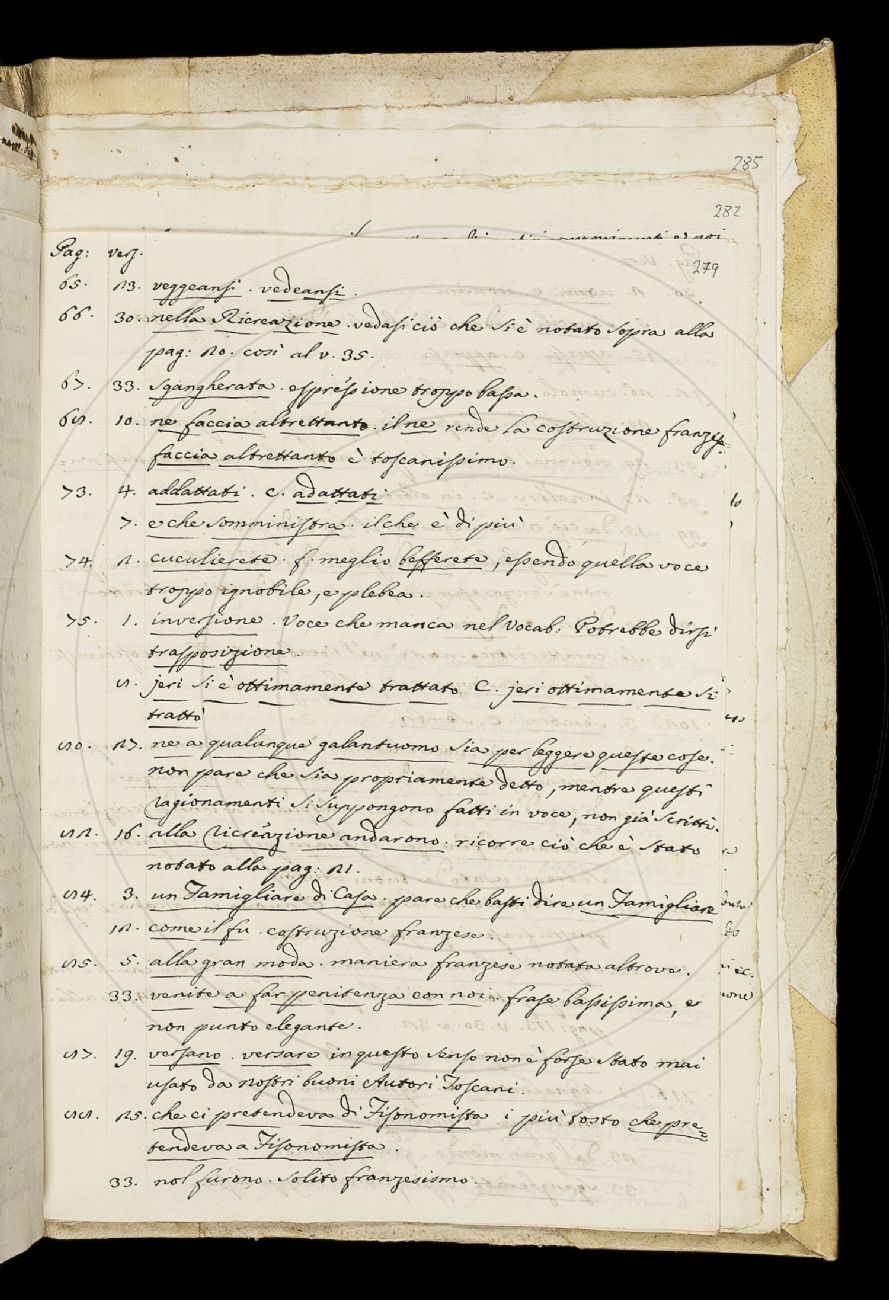 285
282
279
Pag: vers.
65. 23. veggeansi. vedeansi.
66. 30. nella Ricreazione. vedasi ciò che si è notato sopra alla
pag: 20. così al v. 35.
67. 33. sgangherata. espressione troppo bassa.
68. 10. ne faccia altrettanto. il ne rende la costruzione franzese.
faccia altrettanto è toscanissimo.
73. 4. addattati. C. adattati
7. e che somministra. il che è di più
74. 2. cuculierete. f. meglio befferete, essendo quella voce
troppo ignobile, e plebea.
75. 1. inversione. Voce che manca nel Vocab: Potrebbe dirsi
trasposizione.
8. jeri si è ottimamente trattato C. jeri ottimamente si
trattò
80. 27. ne a qualunque galantuomo sia per leggere queste cose.
non pare che sia propriamente detto, mentre questi
ragionamenti si suppongono fatti in voce, non già scritti.
82. 16. alla ricreazione andarono. ricorre ciò che è stato
notato alla pag: 21.
84. 3. un Famigliare di Casa: pare che basti dire un Famigliare
12. come il fu. costruzione franzese.
85. 5. alla gran moda. maniera franzese notata altrove.
33. venite a far penitenza con noi. frase bassissima, e
non punto elegante.
87. 19. versano. versare in questo senso non è forse stato mai
usato da nostri buoni Autori Toscani.
88. 25. che ci pretendeva di Fisonomista i più tosto che pre=
tendeva a Fisonomista.
33. nol furono. solito franzesismo.